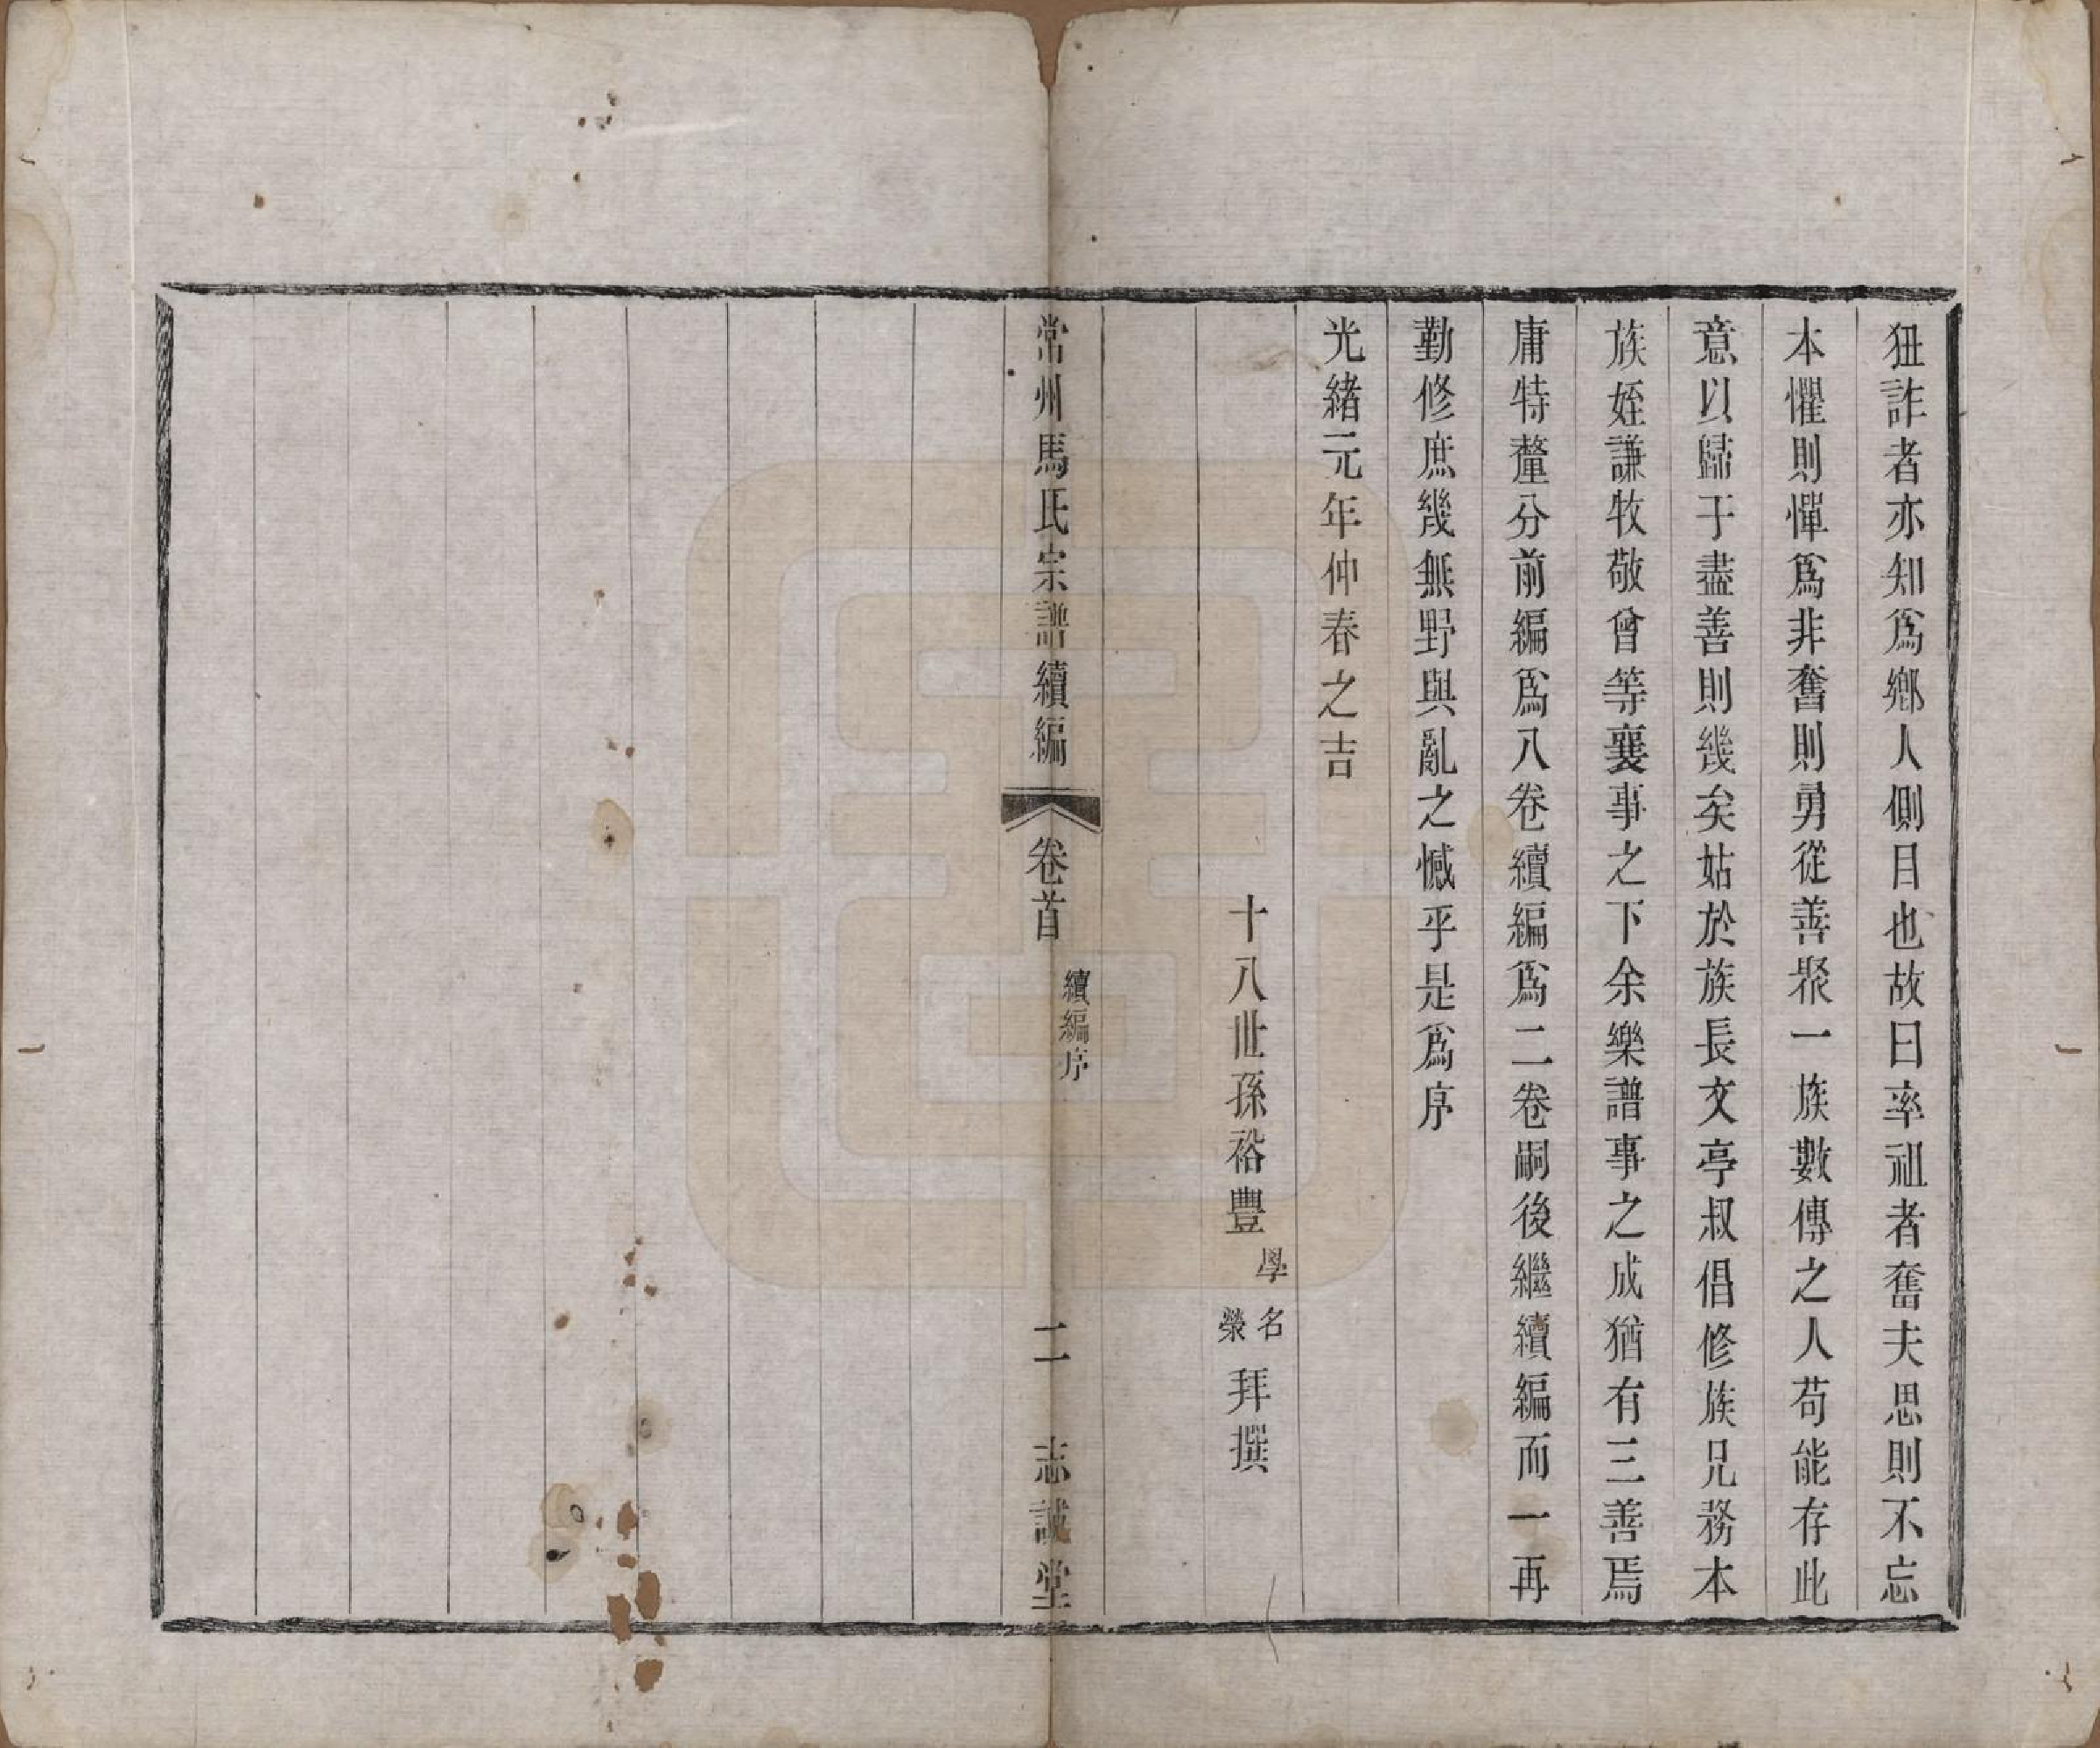 狃詐者亦知爲鄉人側目也故曰率祖者奮夫思則不忘
本懼則憚爲非奮則勇從善聚一族數傳之人苟能存此
意以歸于盡善則幾矣姑於族長文亭叔倡修族兄務本
族姪謙牧敬曾等襄事之下余樂譜事之成猶有三善焉
庸特釐分前編爲八卷續編爲二卷嗣後繼續編而一再
勤修庶幾無野與亂之憾乎是爲序
光緒元年仲春之吉
十八世孫裕豐學名榮拜撰
常州馬氏宗譜續編 卷首 續編序 二 志誠堂